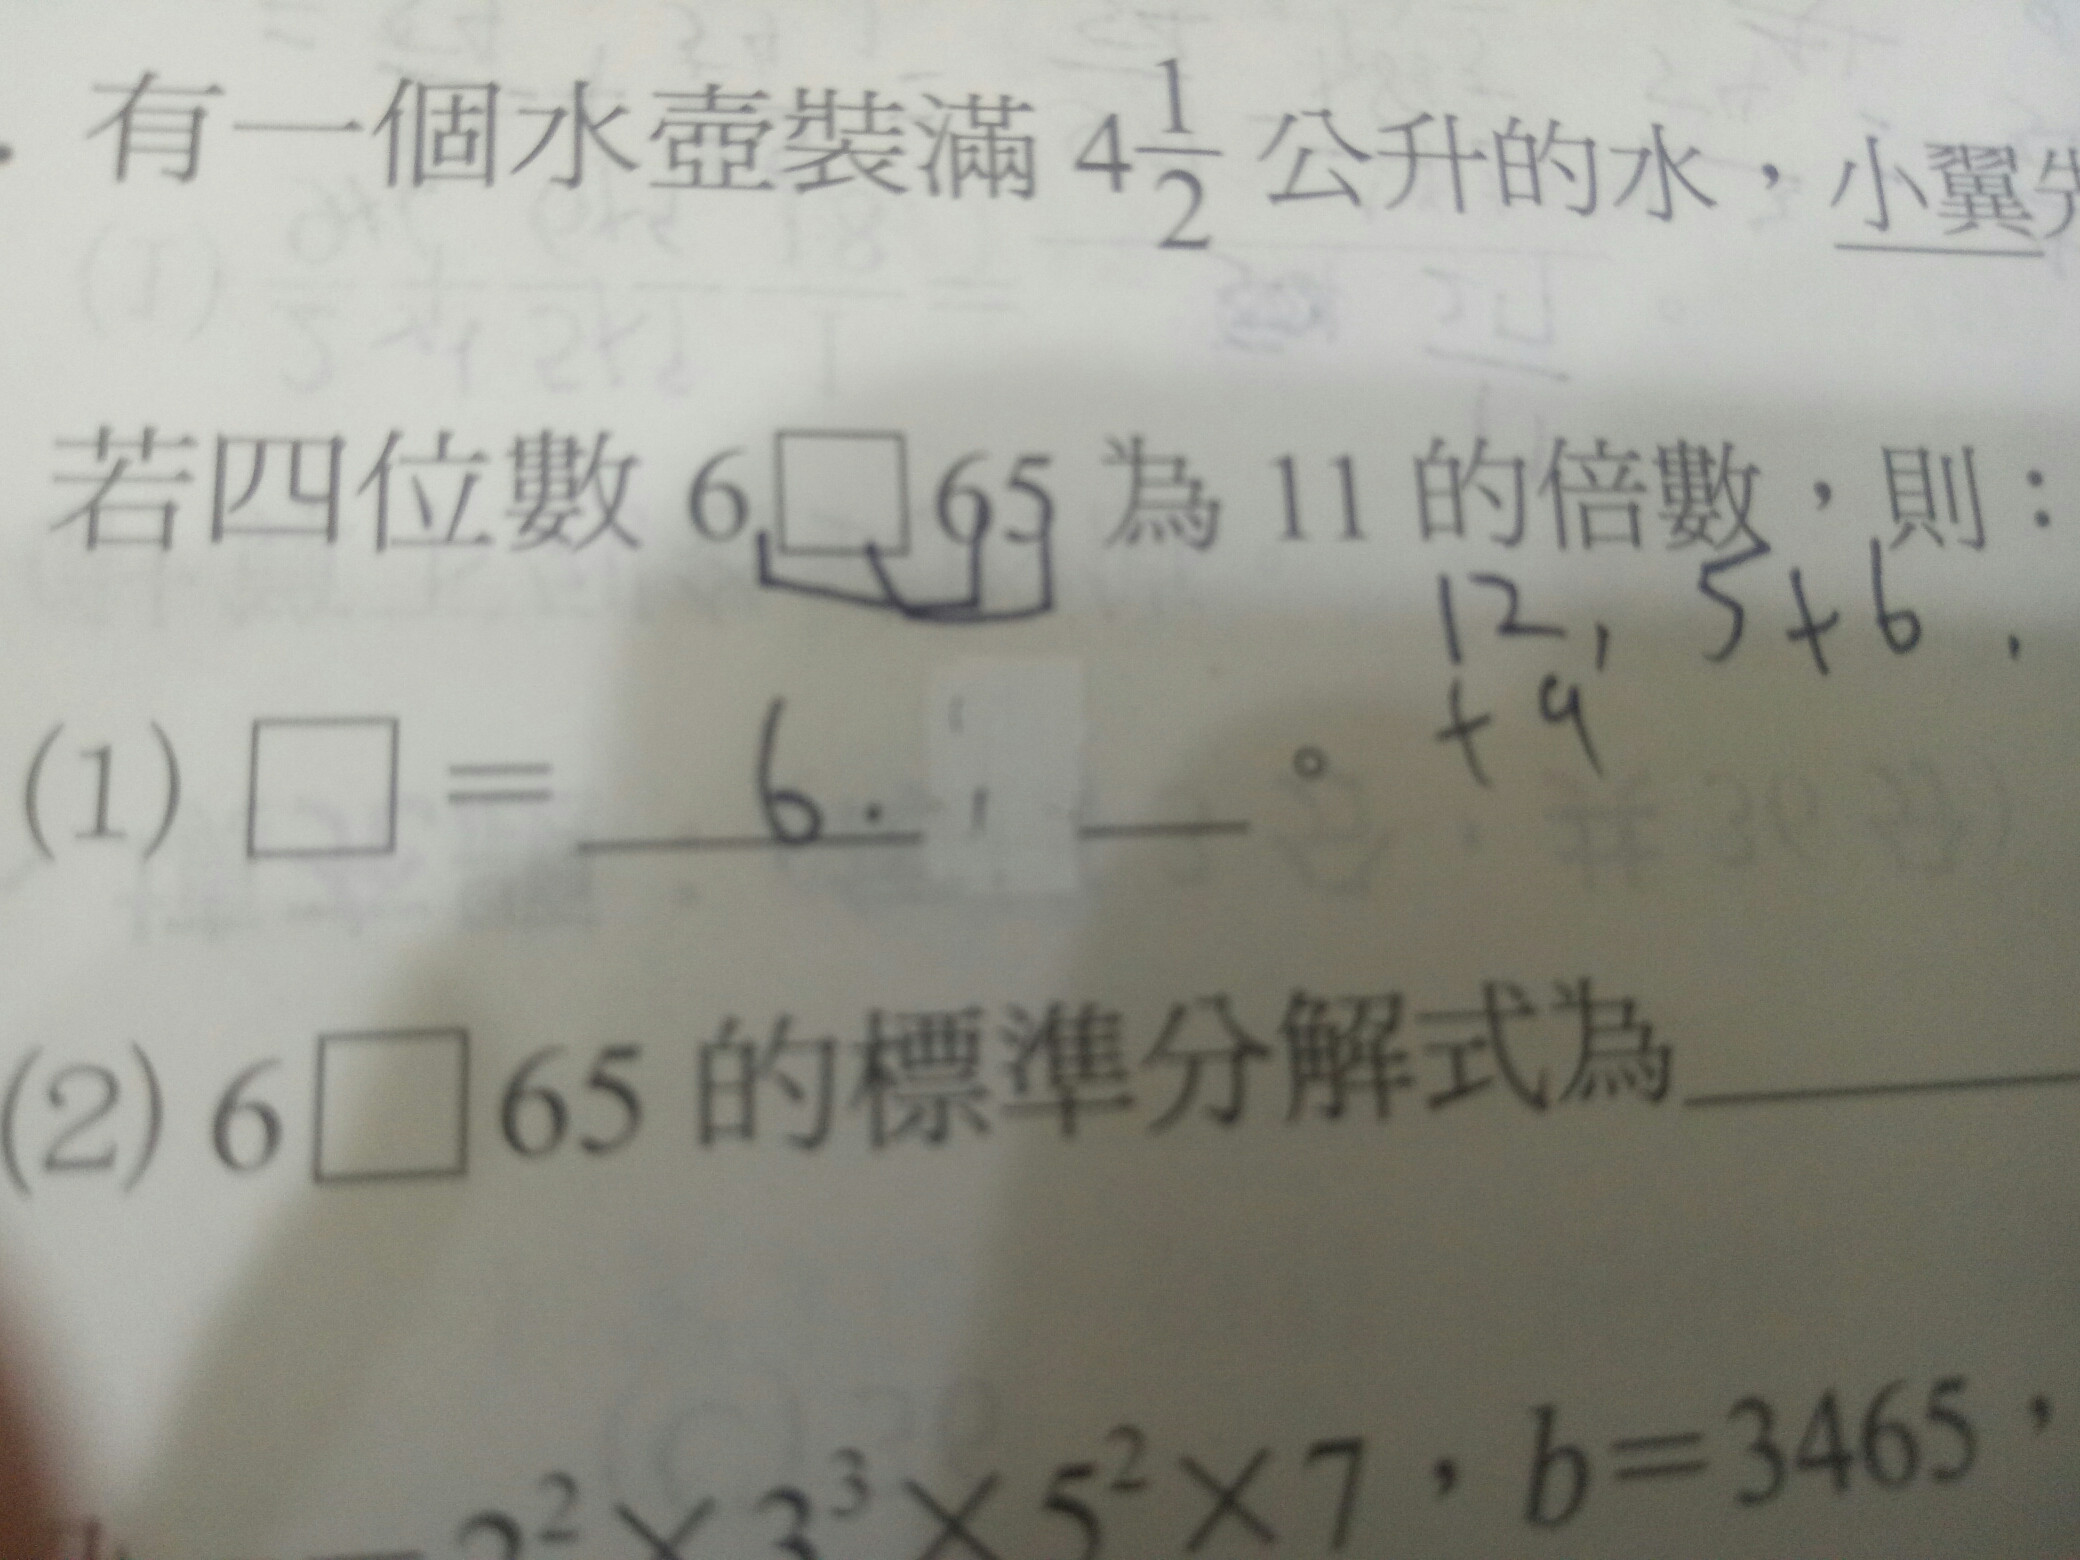 有一個水壺裝滿 4 1/2 公升的水，小翼先
若四位數 6□65 為 11 的倍數，則：
12, 5+6.
+9
(1) □＝ 6. 。
(2) 6□65 的標準分解式為
2²×3³×5²×7，b＝3465，